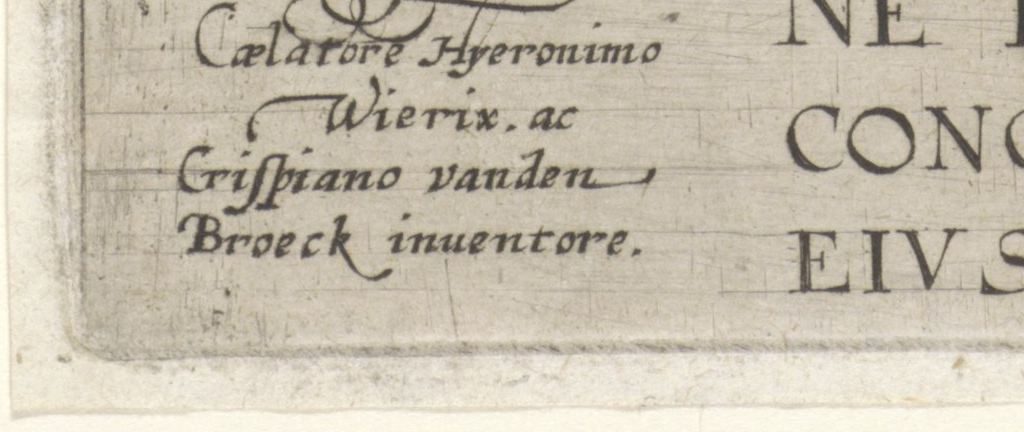 Cælatore Hyeronimo
Wierix. ac
Criſpiano vanden
Broeck inuentore.
NE
CONC
EIVS